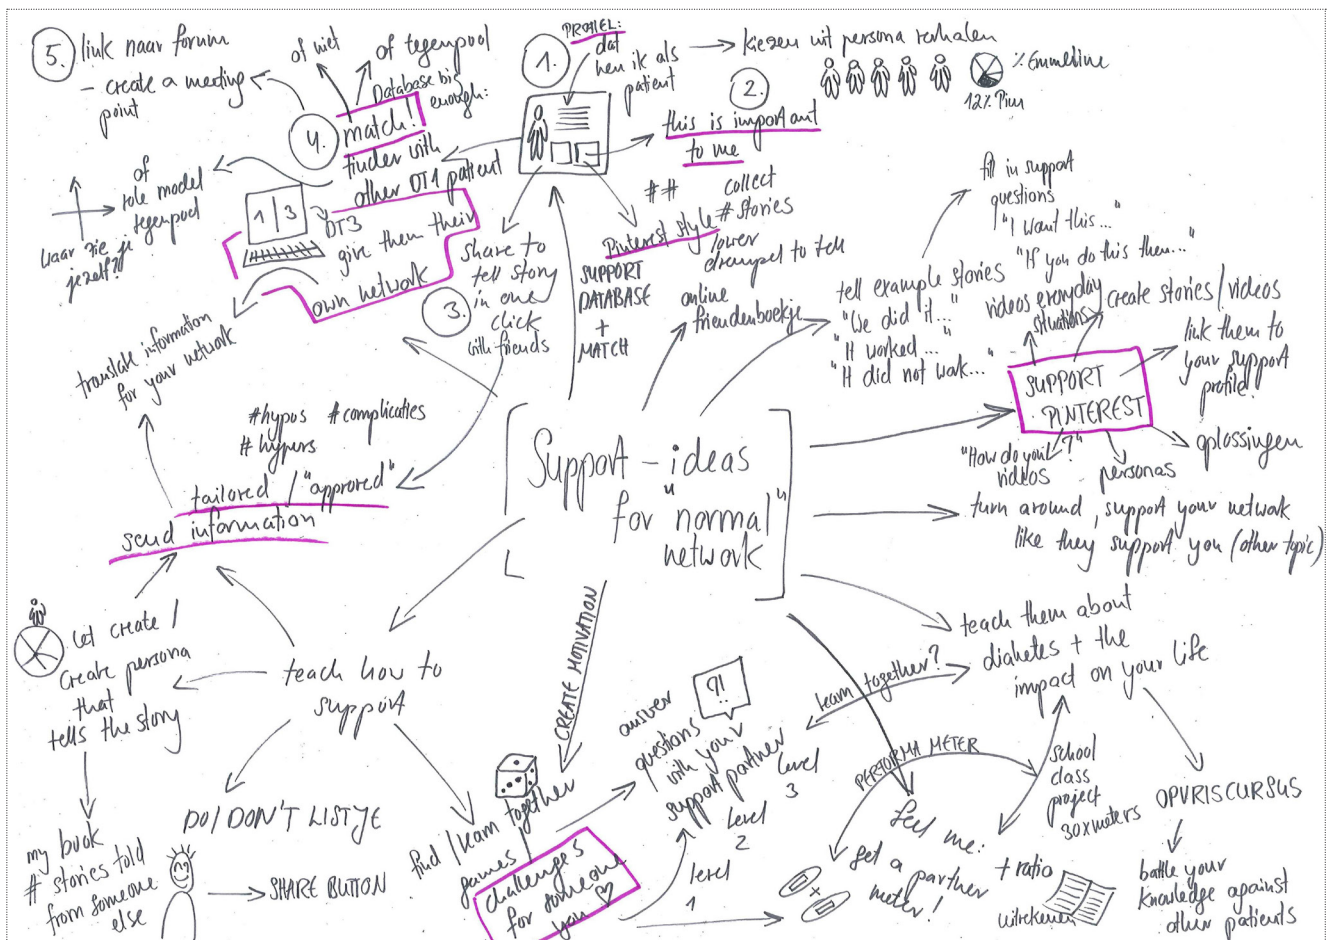 5. link naar forum
- create a meeting
point
of niet
of tegenpool
Database big
enough:
4. match!
finder with
other DT1 patient
of
role model
tegenpool
waar zie je
jezelf?
1 | 3
DT3
give them their
own network
translate information
for your network
1. PROFIEL:
dat
ben ik als
patient
kiezen uit persona verhalen
% Emmeline
12% Pim
2.
this is important
to me
##
Pinterest style
collect
# stories
lower
drempel to tell
3.
share to
tell story
in one
click
with friends
SUPPORT
DATABASE
+
MATCH
online
friendenboekje
tell example stories
"We did it..."
"It worked..."
"It did not work..."
fill in support
questions
"I want this..."
"If you do this then..."
videos everyday
situations
create stories/videos
link them to
your support
profile!
SUPPORT
PINTEREST
"How do you ?"
videos
personas
oplossingen
turn around, support your network
like they support you (other topic)
#hypos #complicaties
# hypers
tailored / "approved"
send information
Support - ideas
for "normal"
network
let create /
create persona
that
tells the story
teach how to
support
my book
# stories told
from someone
else
DO/DON'T LISTJE
SHARE BUTTON
CREATE MOTIVATION
find / learn together
games /
challenges
for someone
you ♡
answer
questions
with your
support partner
?!
level
1
level
2
level
3
learn together?
teach them about
diabetes + the
impact on your life
PERFORMA METER
school
class
project
30x meters
feel me:
get a partner
meter!
+
+ ratio
uitrekenen
OPFRISCURSUS
battle your
knowledge against
other patients